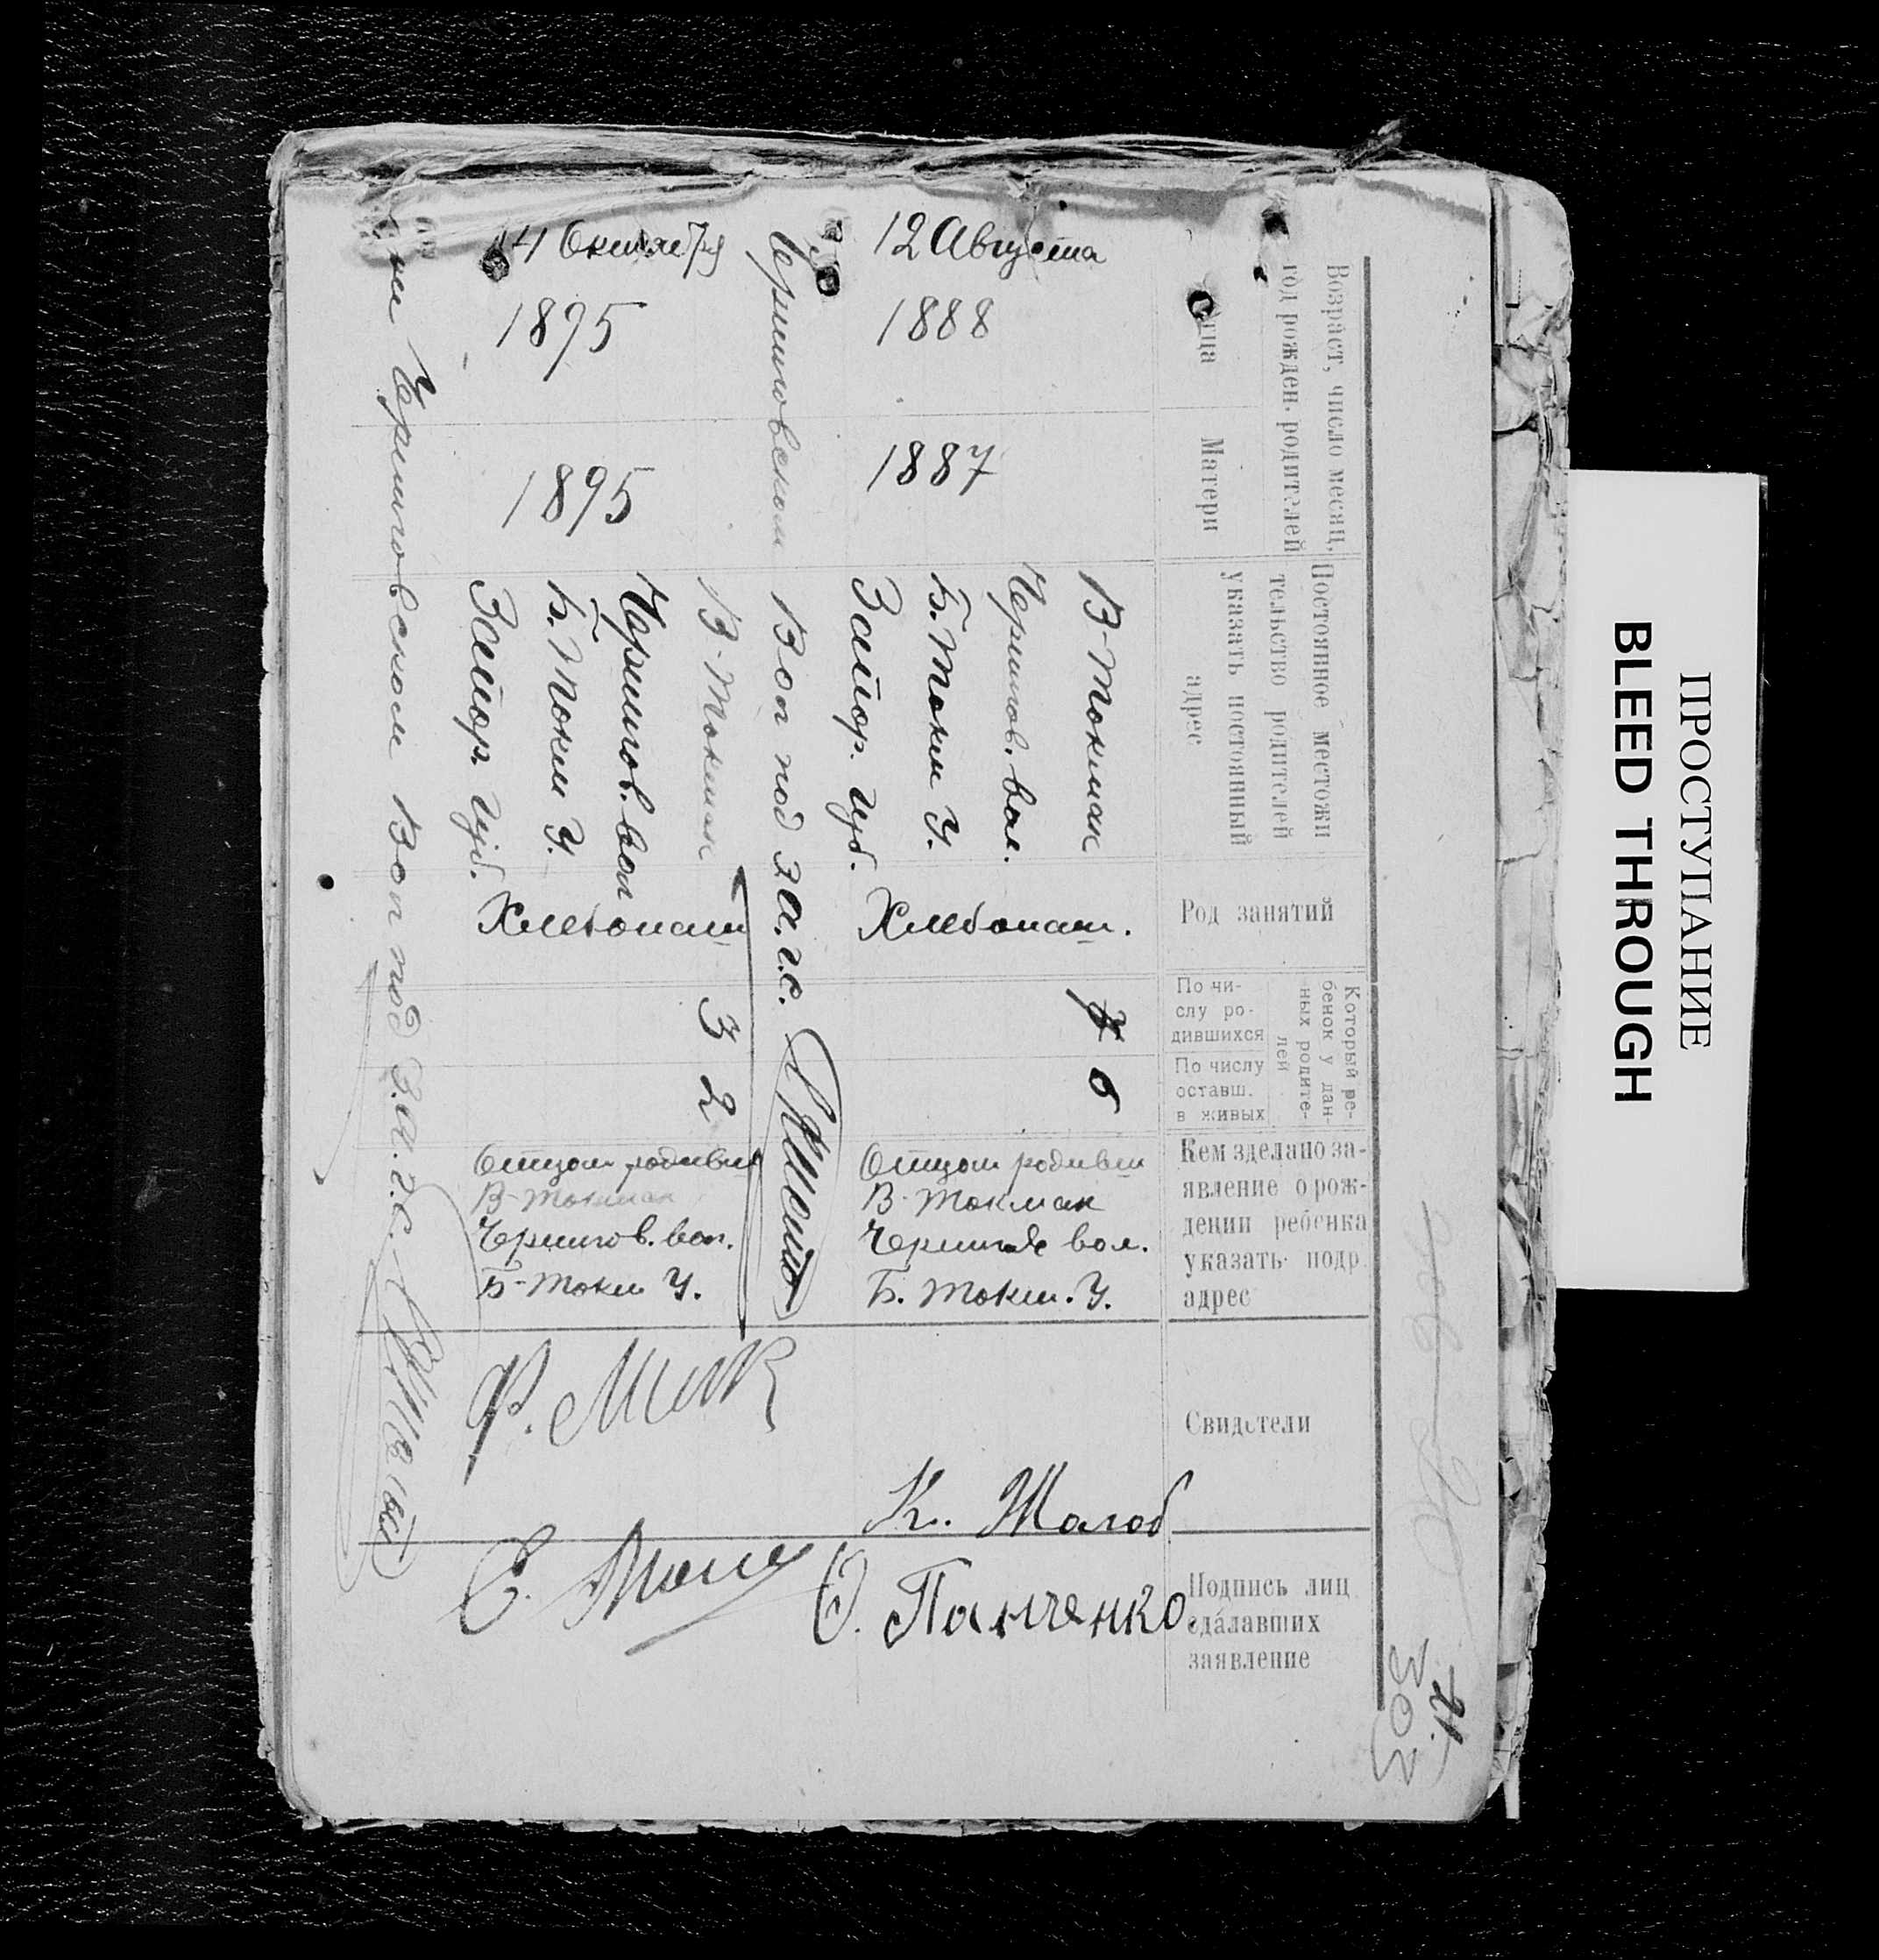 Возраст, число месяц,
год рожден. родителей
Отца
Матери
Постоянное местожи
тельство родителей
указать постоянный
адрес
Род занятий
Который ре-
бенок у дан-
ных родите-
лей
По чи-
слу ро-
дившихся
По числу
оставш.
в живых
Кем зделано за-
явление о рож-
дении ребенка
указать подр.
адрес
Свидетели
Подпись лиц
сдалавших
заявление
12 Августа
1888
1887
В-Токмак
Чернигов. вол.
Б. Токм У.
Запор. Губ.
Хлебопаш.
6
Отцом родивш
В-Токмак
Чернигов вол.
Б. Токм. У.
К. Жолоб
Панченко.
Черниговском Вол под З.А.Г.С.
4 Октября
1895
1895
В-Токмак
Чернигов. вол
Б. Токм У.
Запор. Губ.
Хлебопаш
3
2
Отцом родивш
В-Токмак
Чернигов. вол.
Б-Токм У.
Черниговском Вол под З.А.Г.С.
21.
303
ПРОСТУПАНИЕ
BLEED THROUGH